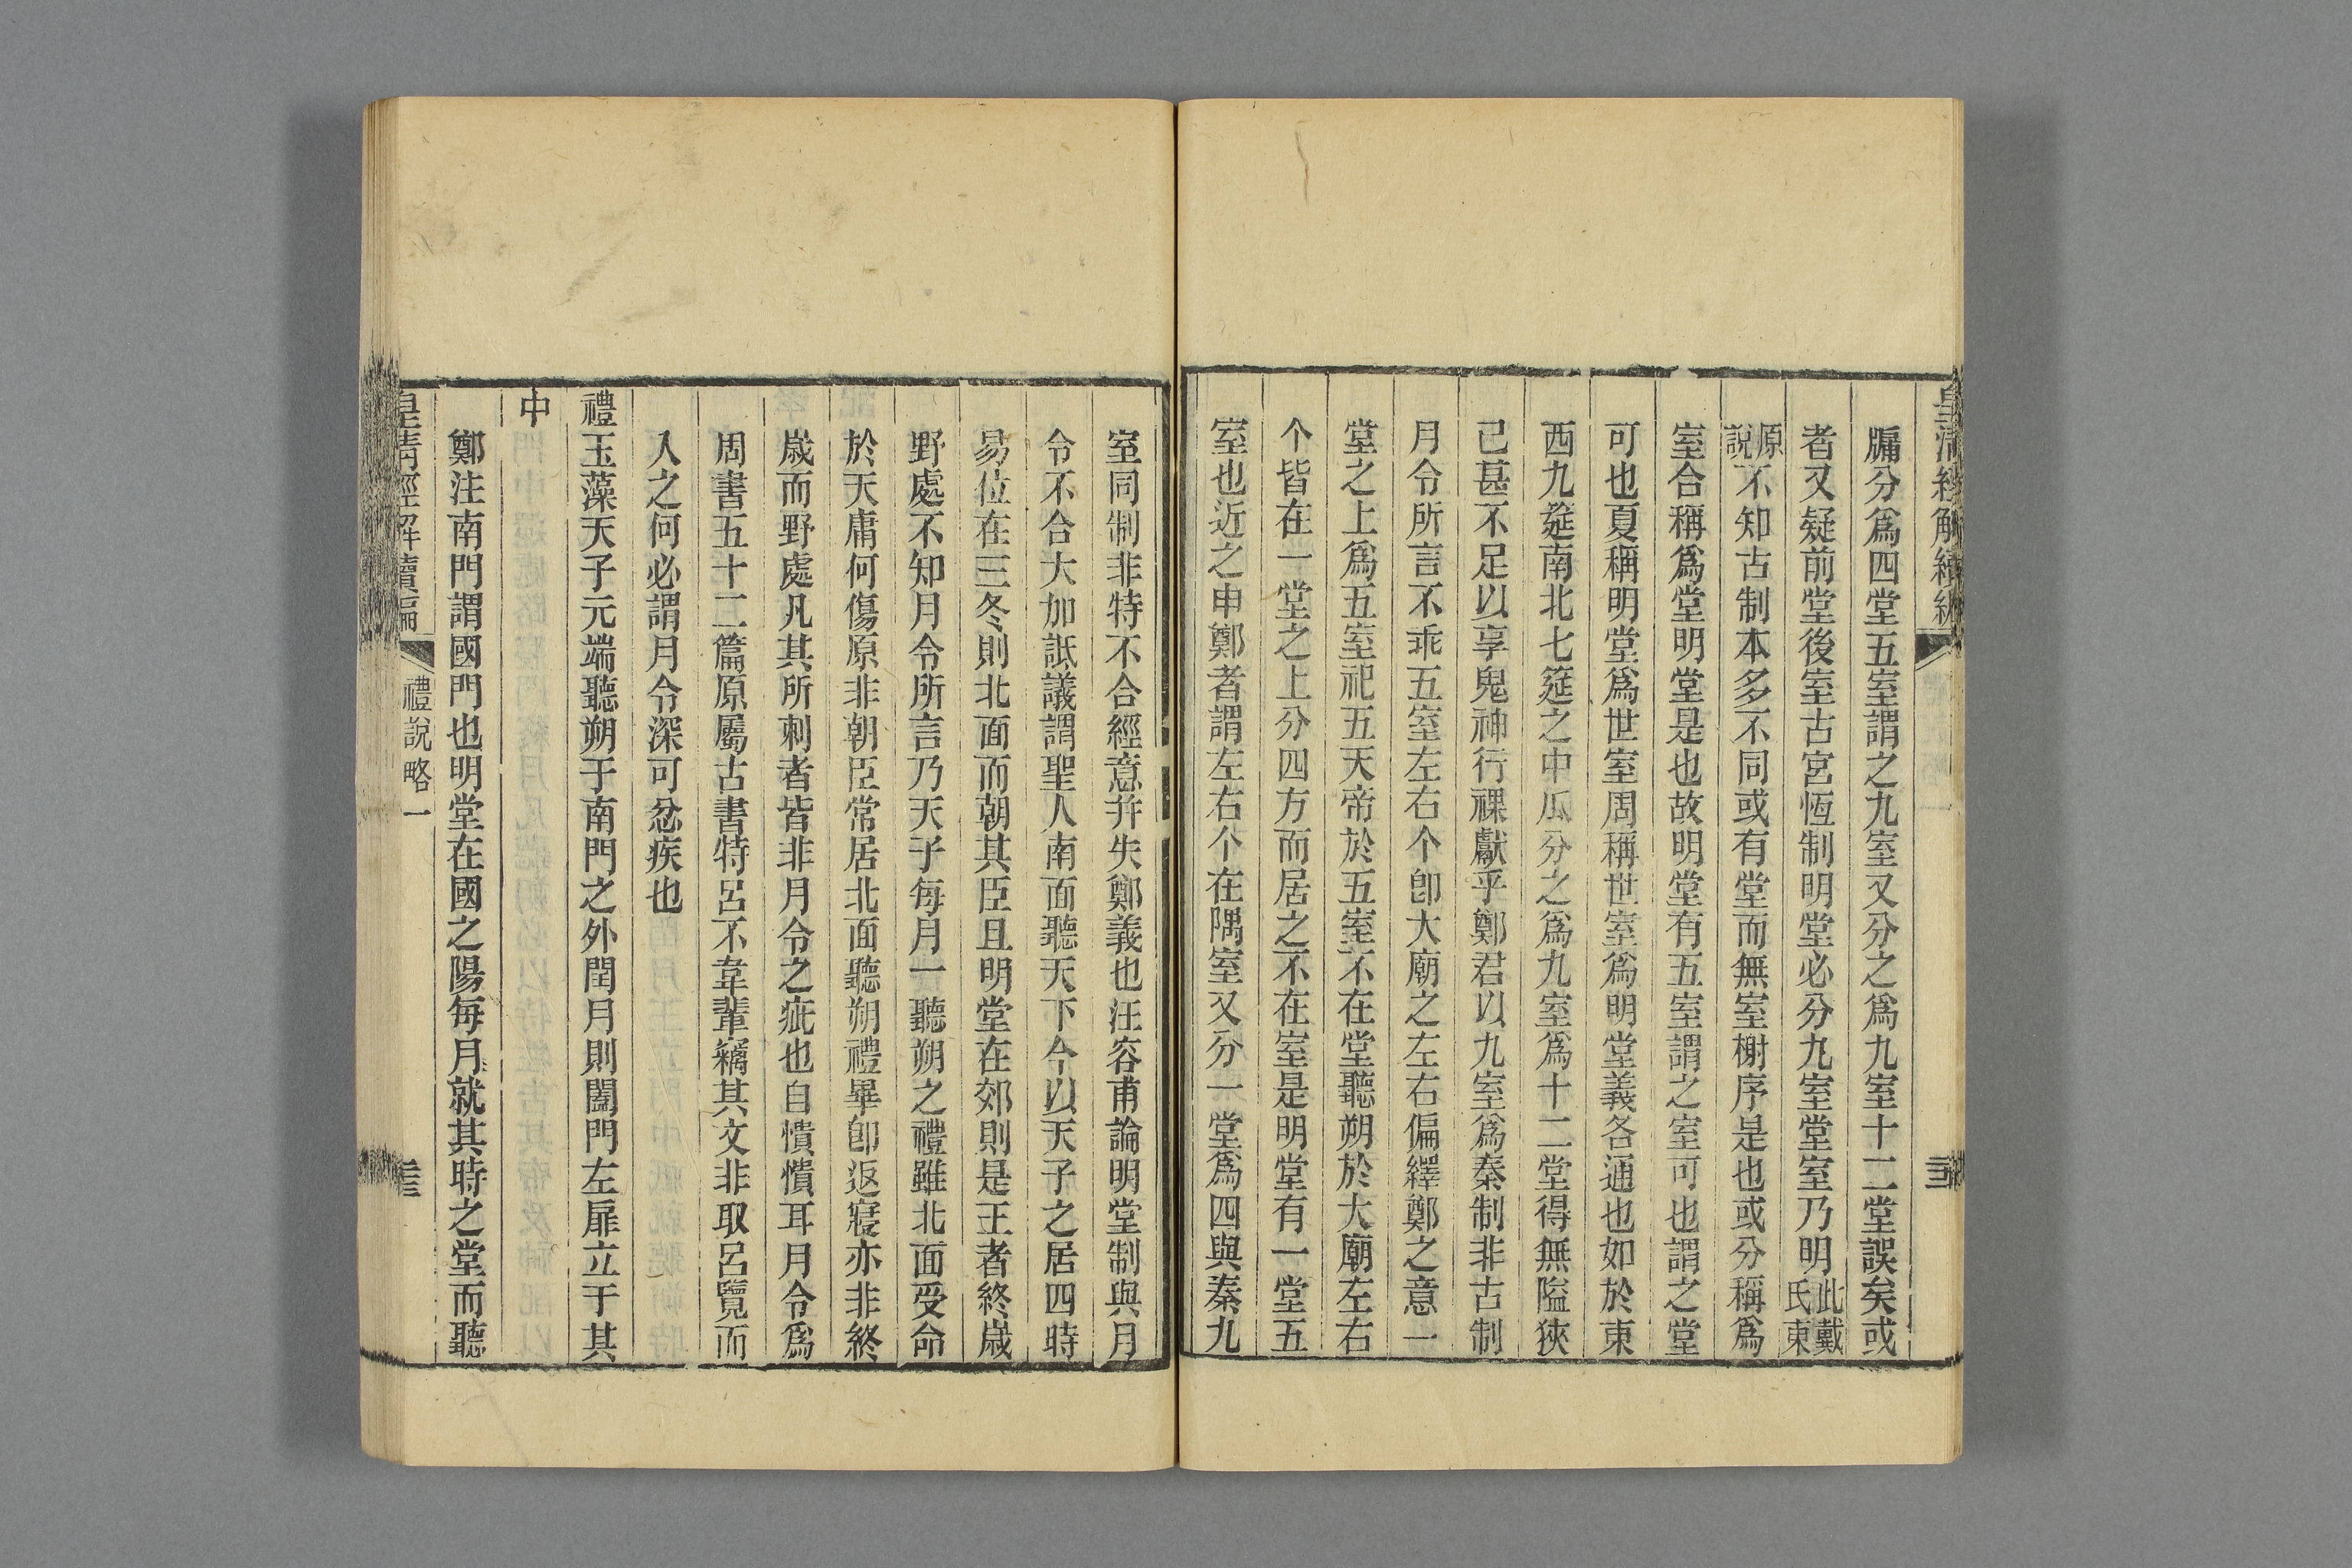 皇清經解續編
牖分爲四堂五室謂之九室又分之爲九室十二堂誤矣或
者又疑前堂後室古宮恆制明堂必分九室堂室乃明此戴氏東
原說不知古制本多不同或有堂而無室榭序是也或分稱爲
室合稱爲堂明堂是也故明堂有五室謂之室可也謂之堂
可也夏稱明堂爲世室周稱世室爲明堂義各通也如於東
西九筵南北七筵之中瓜分之爲九室爲十二堂得無隘狹
已甚不足以享鬼神行祼獻乎鄭君以九室爲秦制非古制
月令所言不乖五室左右个卽大廟之左右偏繹鄭之意一
堂之上爲五室祀五天帝於五室不在堂聽朔於大廟左右
个皆在一堂之上分四方而居之不在室是明堂有一堂五
室也近之申鄭者謂左右个在隅室又分一堂爲四與秦九
室同制非特不合經意幷失鄭義也汪容甫論明堂制與月
令不合大加詆議謂聖人南面聽天下今以天子之居四時
易位在三冬則北面而朝其臣且明堂在郊則是王者終歲
野處不知月令所言乃天子每月一聽朔之禮雖北面受命
於天庸何傷原非朝臣常居北面聽朔禮畢卽返寢亦非終
歲而野處凡其所刺者皆非月令之疵也自憒憒耳月令爲
周書五十二篇原屬古書特呂不韋輩竊其文非取呂覽而
入之何必謂月令深可忿疾也
禮玉藻天子元端聽朔于南門之外閏月則闔門左扉立于其
中
鄭注南門謂國門也明堂在國之陽每月就其時之堂而聽
皇清經解續編
禮說略一